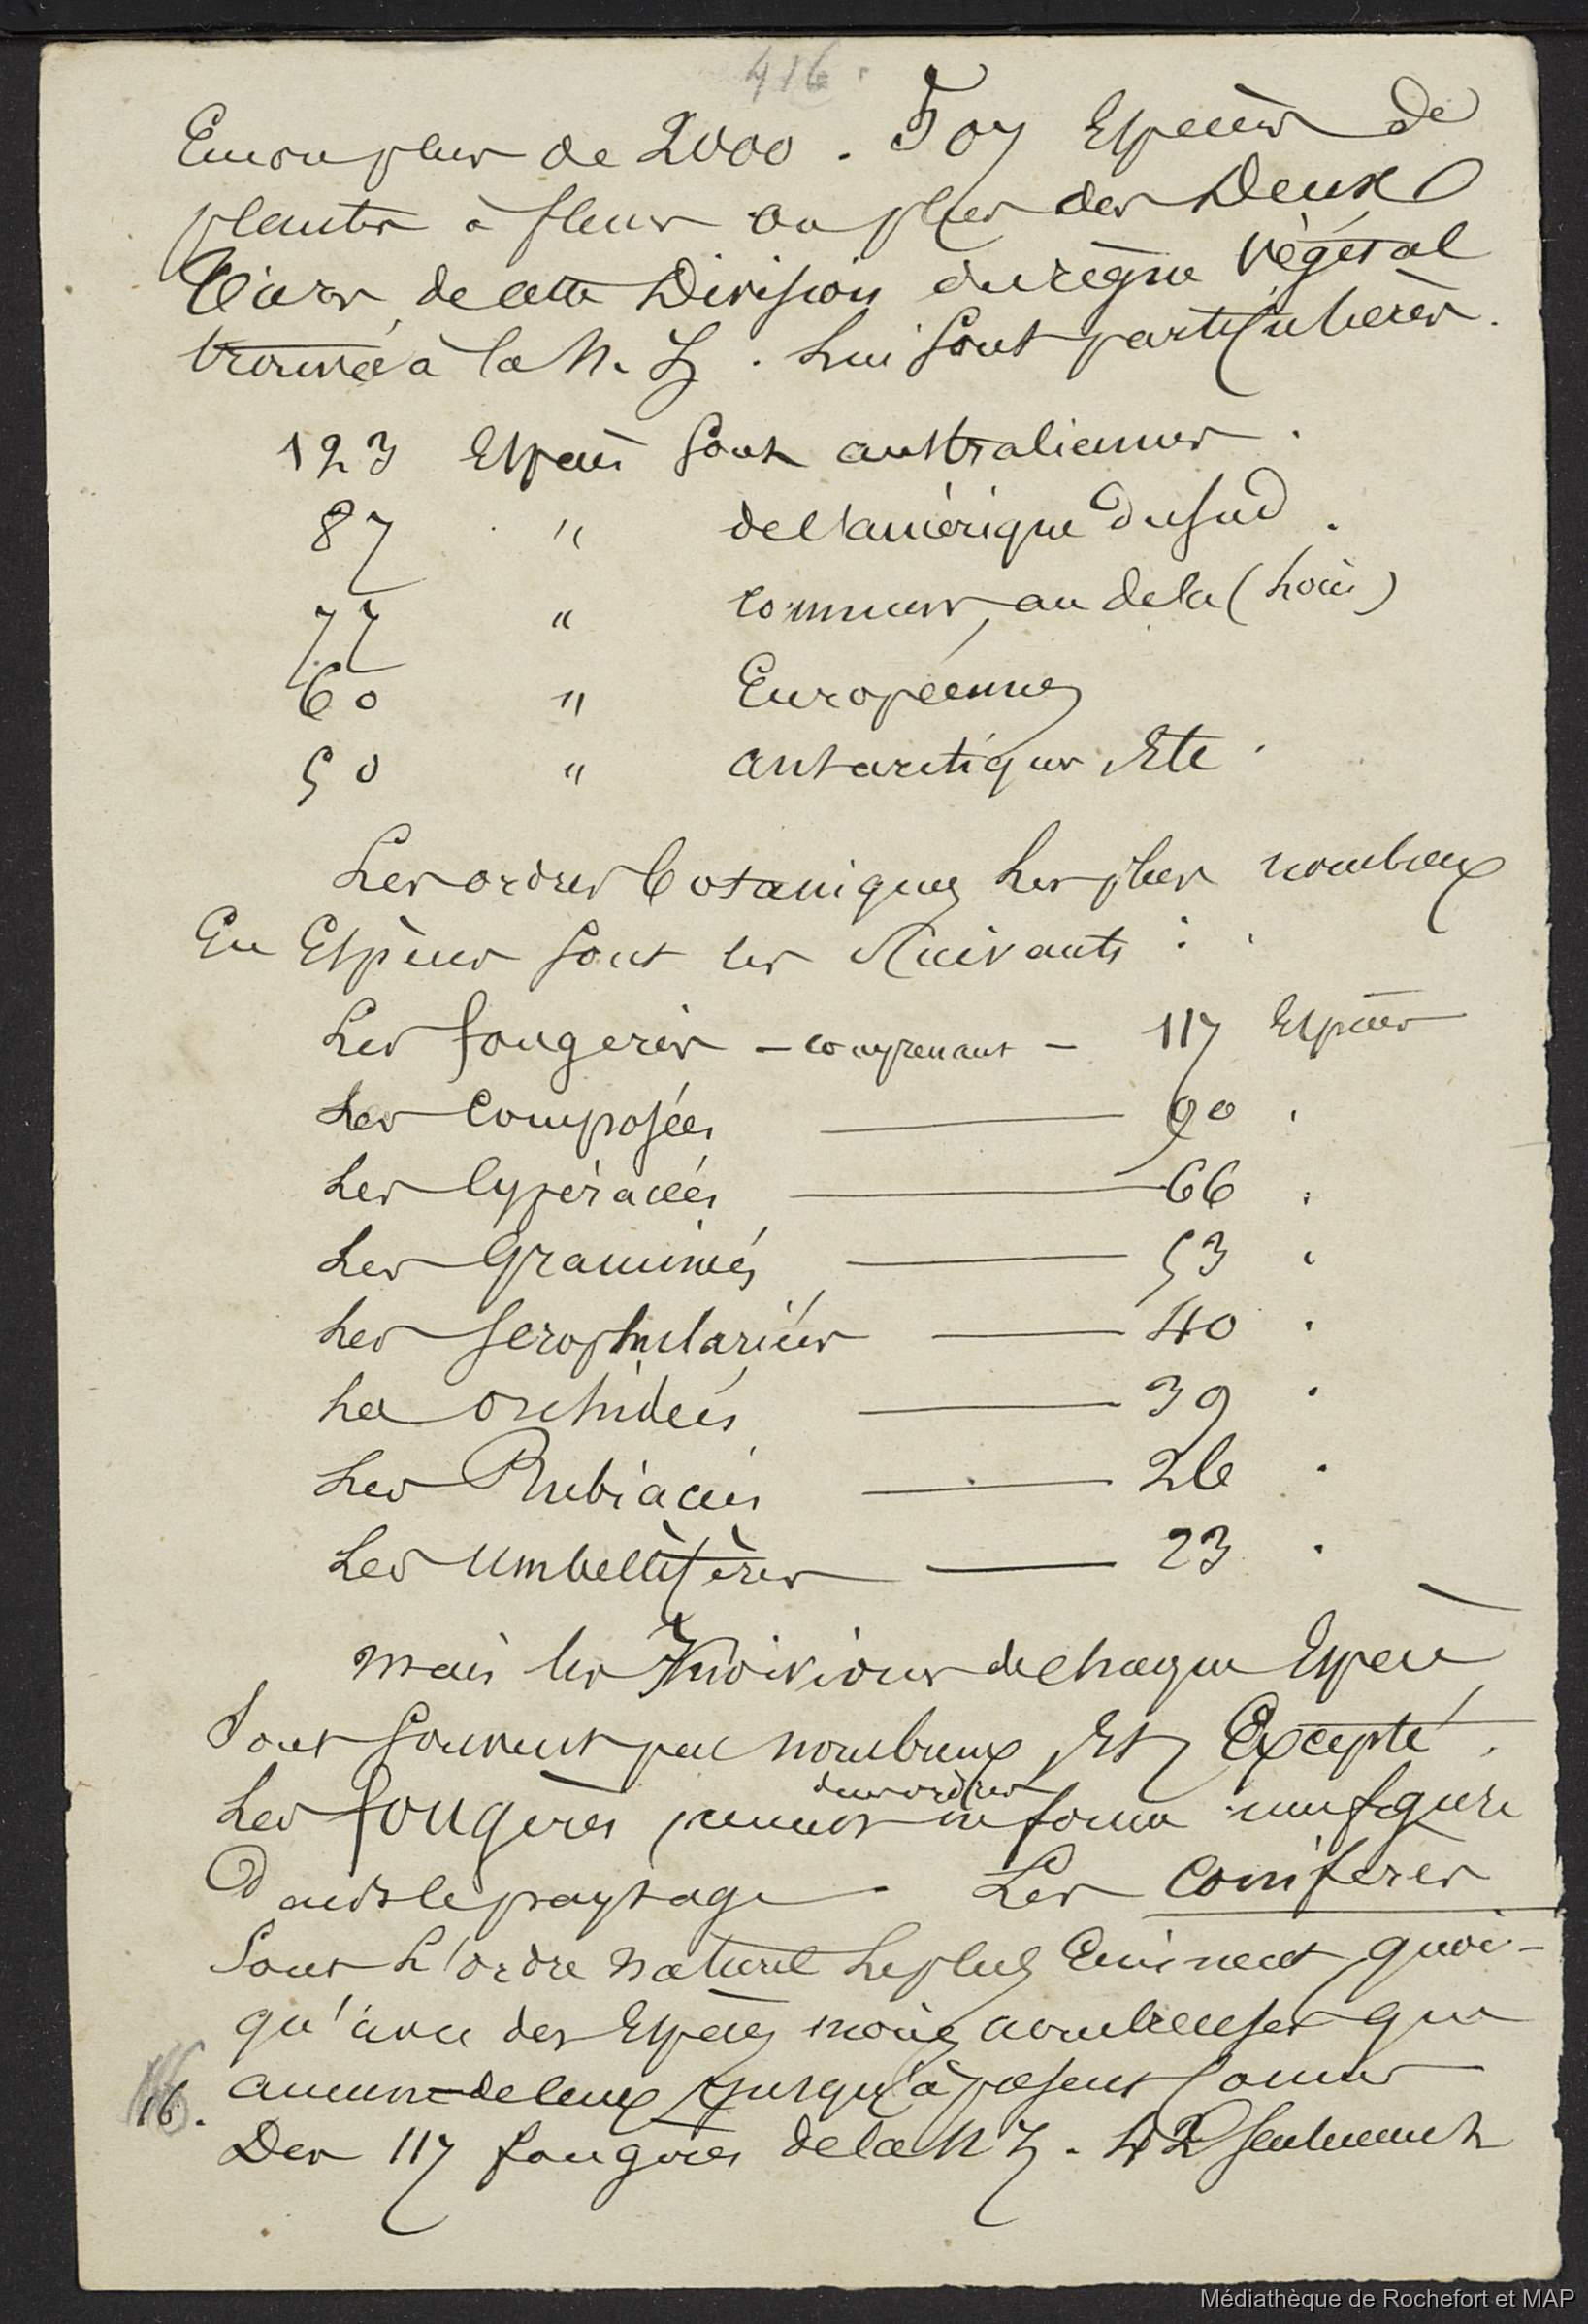 416.
Encore plus de 2000. 507 Espèces de
plantes à fleurs ou plus des Deux
Tiers, de cette Division du règne Végétal
trouvée à la N. Z. lui sont particulières.
123 Espèces sont australiennes.
87 " de l'amérique du sud.
77 " communes, au dela (hors)
60 " Européennes
50 " antarctiques Etc.
Les ordres botaniques les plus nombreux
En Espèces sont les suivants :
Les fougères – comprenant – 117 Espèces
Les Composées 90 "
Les Cypéracées 66 "
Les Graminées 53 "
Les Scrophulariées 40 "
Les orchidées 39 "
Les Rubiacées 26 "
Les Umbellifères 23 "
mais les Individus de chaque Espèce
sont souvent peu nombreux, Et Excepté
Les fougères, aucun des ordres ne forme une figure
Dans le paysage. Les Conifères
sont L'ordre naturel le plus Eminent, quoi-
qu'avec des Espèces moins nombreuses que
aucun de ceux jusqu'à présent connus
16.
Des 117 fougères de la N Z. 42 seulement
Médiathèque de Rochefort et MAP